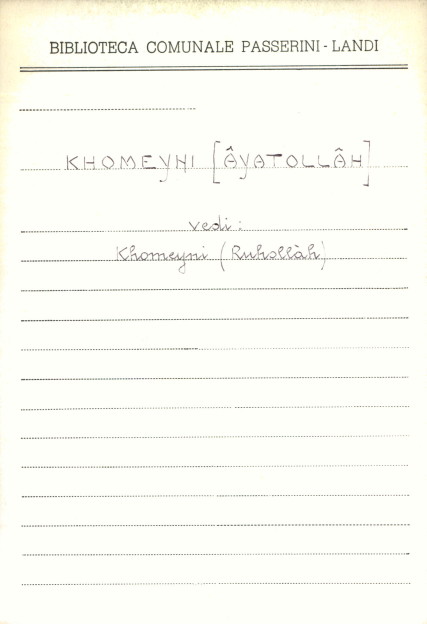 BIBLIOTECA COMUNALE PASSERINI - LANDI
KHOMEYNI [ÂYATOLLÂH]
vedi:
Khomeyni (Ruhollàh)